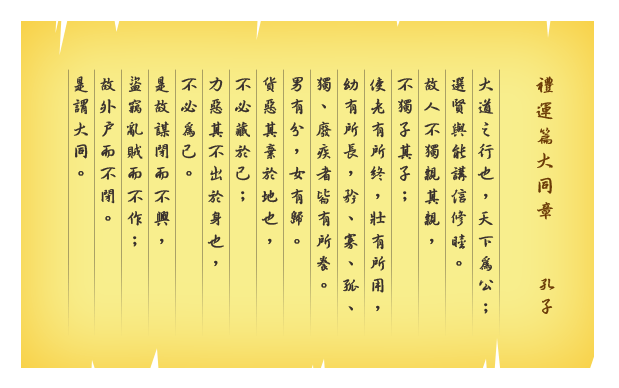 禮運篇大同章 孔子
大道之行也，天下為公；
選賢與能講信修睦。
故人不獨親其親，
不獨子其子；
使老有所終，壯有所用，
幼有所長，矜、寡、孤、
獨、廢疾者皆有所養。
男有分，女有歸。
貨惡其棄於地也，
不必藏於己；
力惡其不出於身也，
不必為己。
是故謀閉而不興，
盜竊亂賊而不作；
故外戶而不閉。
是謂大同。